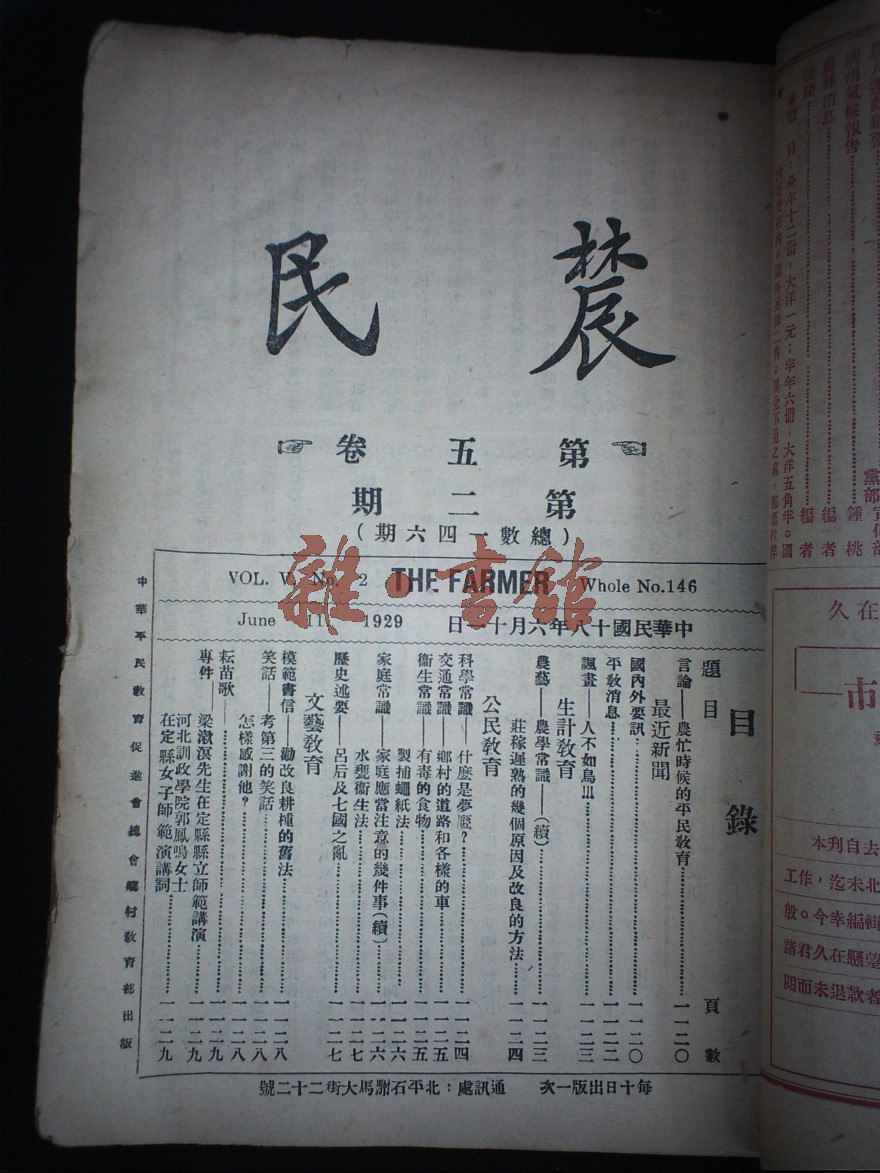 農民
第五卷
第二期
(總數一四六期)
VOL. V. No. 2 THE FARMER Whole No.146
中華民國十八年六月十一日 June 11 1929
目錄
題目 頁數
言論——農忙時候的平民教育 一一二〇
最近新聞
國內外要訊 一一二〇
平敎消息 一一二二
諷畫——人不如鳥!!! 一一二三
生計敎育
農藝——農學常識——(續) 一一二三
莊稼遲熟的幾個原因及改良的方法 一一二四
公民敎育
科學常識——什麽是夢魘? 一一二四
交通常識——鄉村的道路和各樣的車 一一二五
衞生常識——有毒的食物 一一二五
製捕蠅紙法 一一二六
家庭常識——家庭應當注意的幾件事(續) 一一二六
水甕衞生法 一一二七
歷史述要——呂后及七國之亂 一一二七
文藝敎育
模範書信——勸改良耕種的舊法 一一二八
笑話——考第三的笑話 一一二八
怎樣感謝他? 一一二八
耘苗歌 一一二九
專件——梁漱溟先生在定縣縣立師範講演 一一二九
河北訓政學院郭鳳鳴女士在定縣女子師範演講詞 一一二九
中華平民敎育促進會總會鄉村敎育部出版
每十日出版一次 通訊處:北平石駙馬大街二十二號
雜·書館
農林消息 編者
鍾桃
編者
價目:全年十二冊,大洋一元;半年六冊,大洋五角半。國
久在
市
本刊自去
工作,迄未北
殷。今幸編輯
諸君久在懸望
閱而未退款者